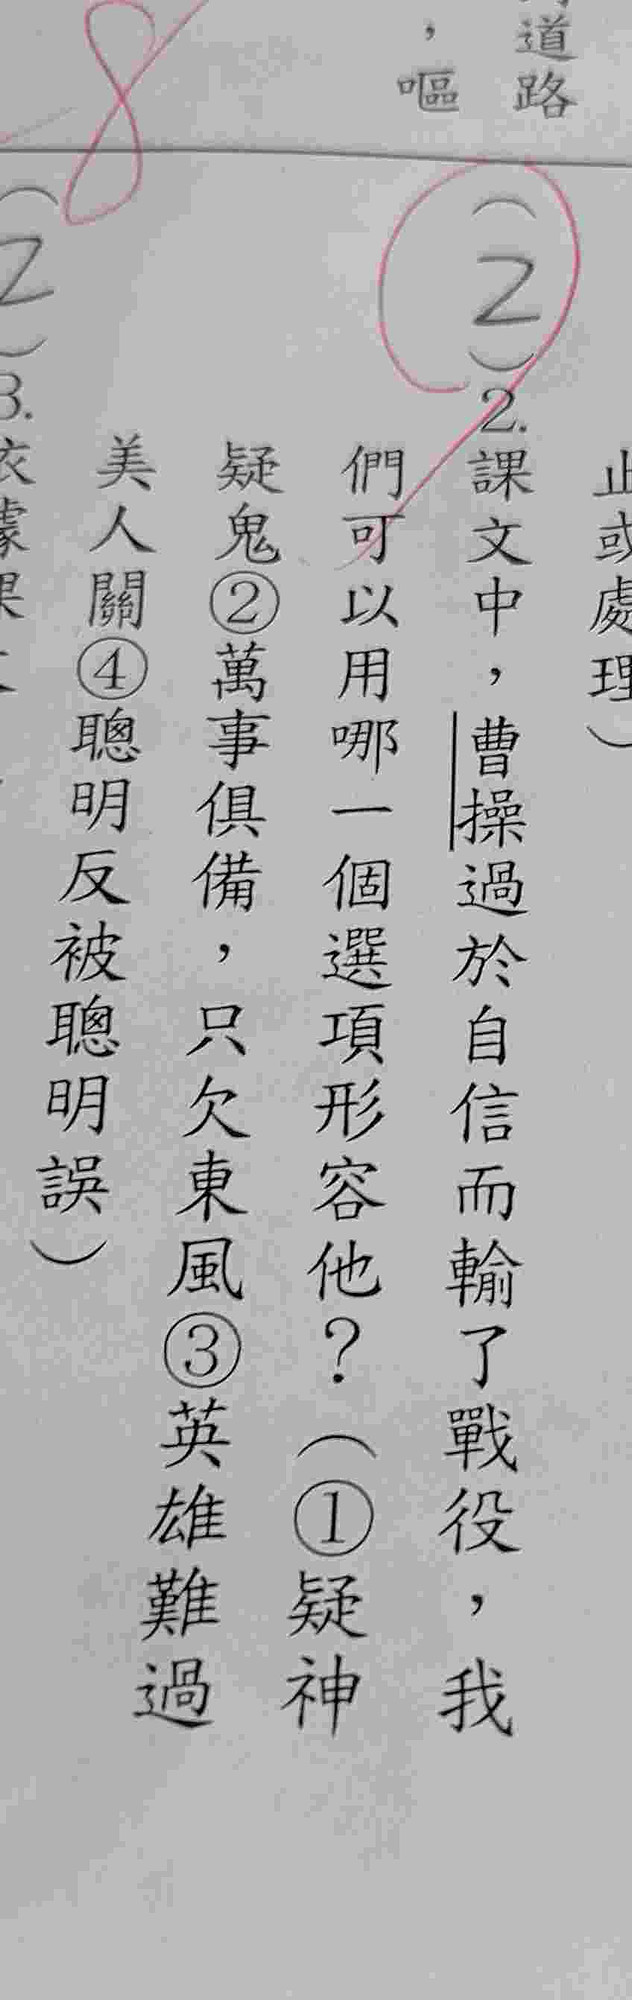 道路
，嘔
8
止或處理）
（2）2.課文中，曹操過於自信而輸了戰役，我
們可以用哪一個選項形容他？（①疑神
疑鬼②萬事俱備，只欠東風③英雄難過
美人關④聰明反被聰明誤）
（2）3.依據課文